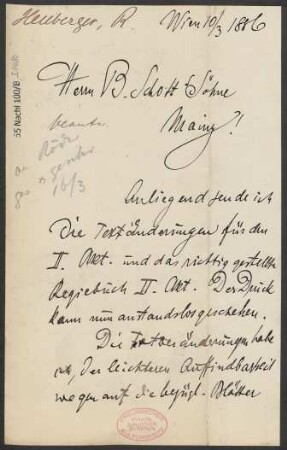 Heuberger, R.
Wien 10/3 1886
Herrn B. Schott Söhne
Mainz!
55 Nachl 100/B
beantw.
16/3
Anliegend sende ich
die Textänderungen für den
II. Akt. und das richtig gestellte
Regiebuch II. Akt. Der Druck
kann nun anstandslos geschehen.
Die Textveränderungen habe
ich, der leichteren Auffindbarkeit
wegen auf die bezügl. Blätter